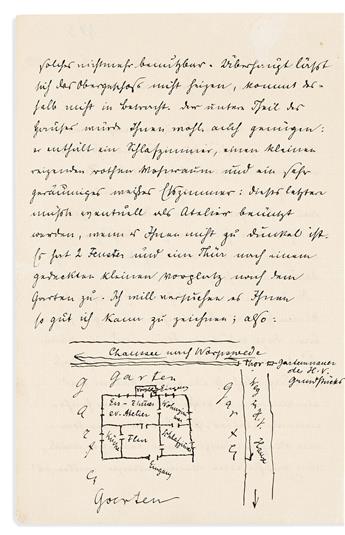 solches nicht mehr benutzbar. Überhaupt lässt
sich das Obergeschoss nicht heizen, kommt des-
halb nicht in Betracht. der untere Theil des
Hauses würde Ihnen wohl auch genügen:
er enthält ein Schlafzimmer, einen kleinen
reizenden rothen Wohnraum und ein sehr
geräumiges weißes Eßzimmer: dieses letztere
müßte eventuell als Atelier benützt
werden, wenn es Ihnen nicht zu dunkel ist.
Es hat 2 Fenster und eine Thür nach einem
gedeckten kleinen Vorplatz nach dem
Garten zu. Ich will versuchen es Ihnen
so gut ich kann zu zeichnen; also:
Chaussee nach Worpswede
Thor
Gartenmauer
des H. v.
Grundstücks
Garten
Eingang
Garten
Ess-Zimmer
ev. Atelier
Wohnzimmer
Küche
Flur
Schlafzimmer
Eingang
Garten
Weg
Garten